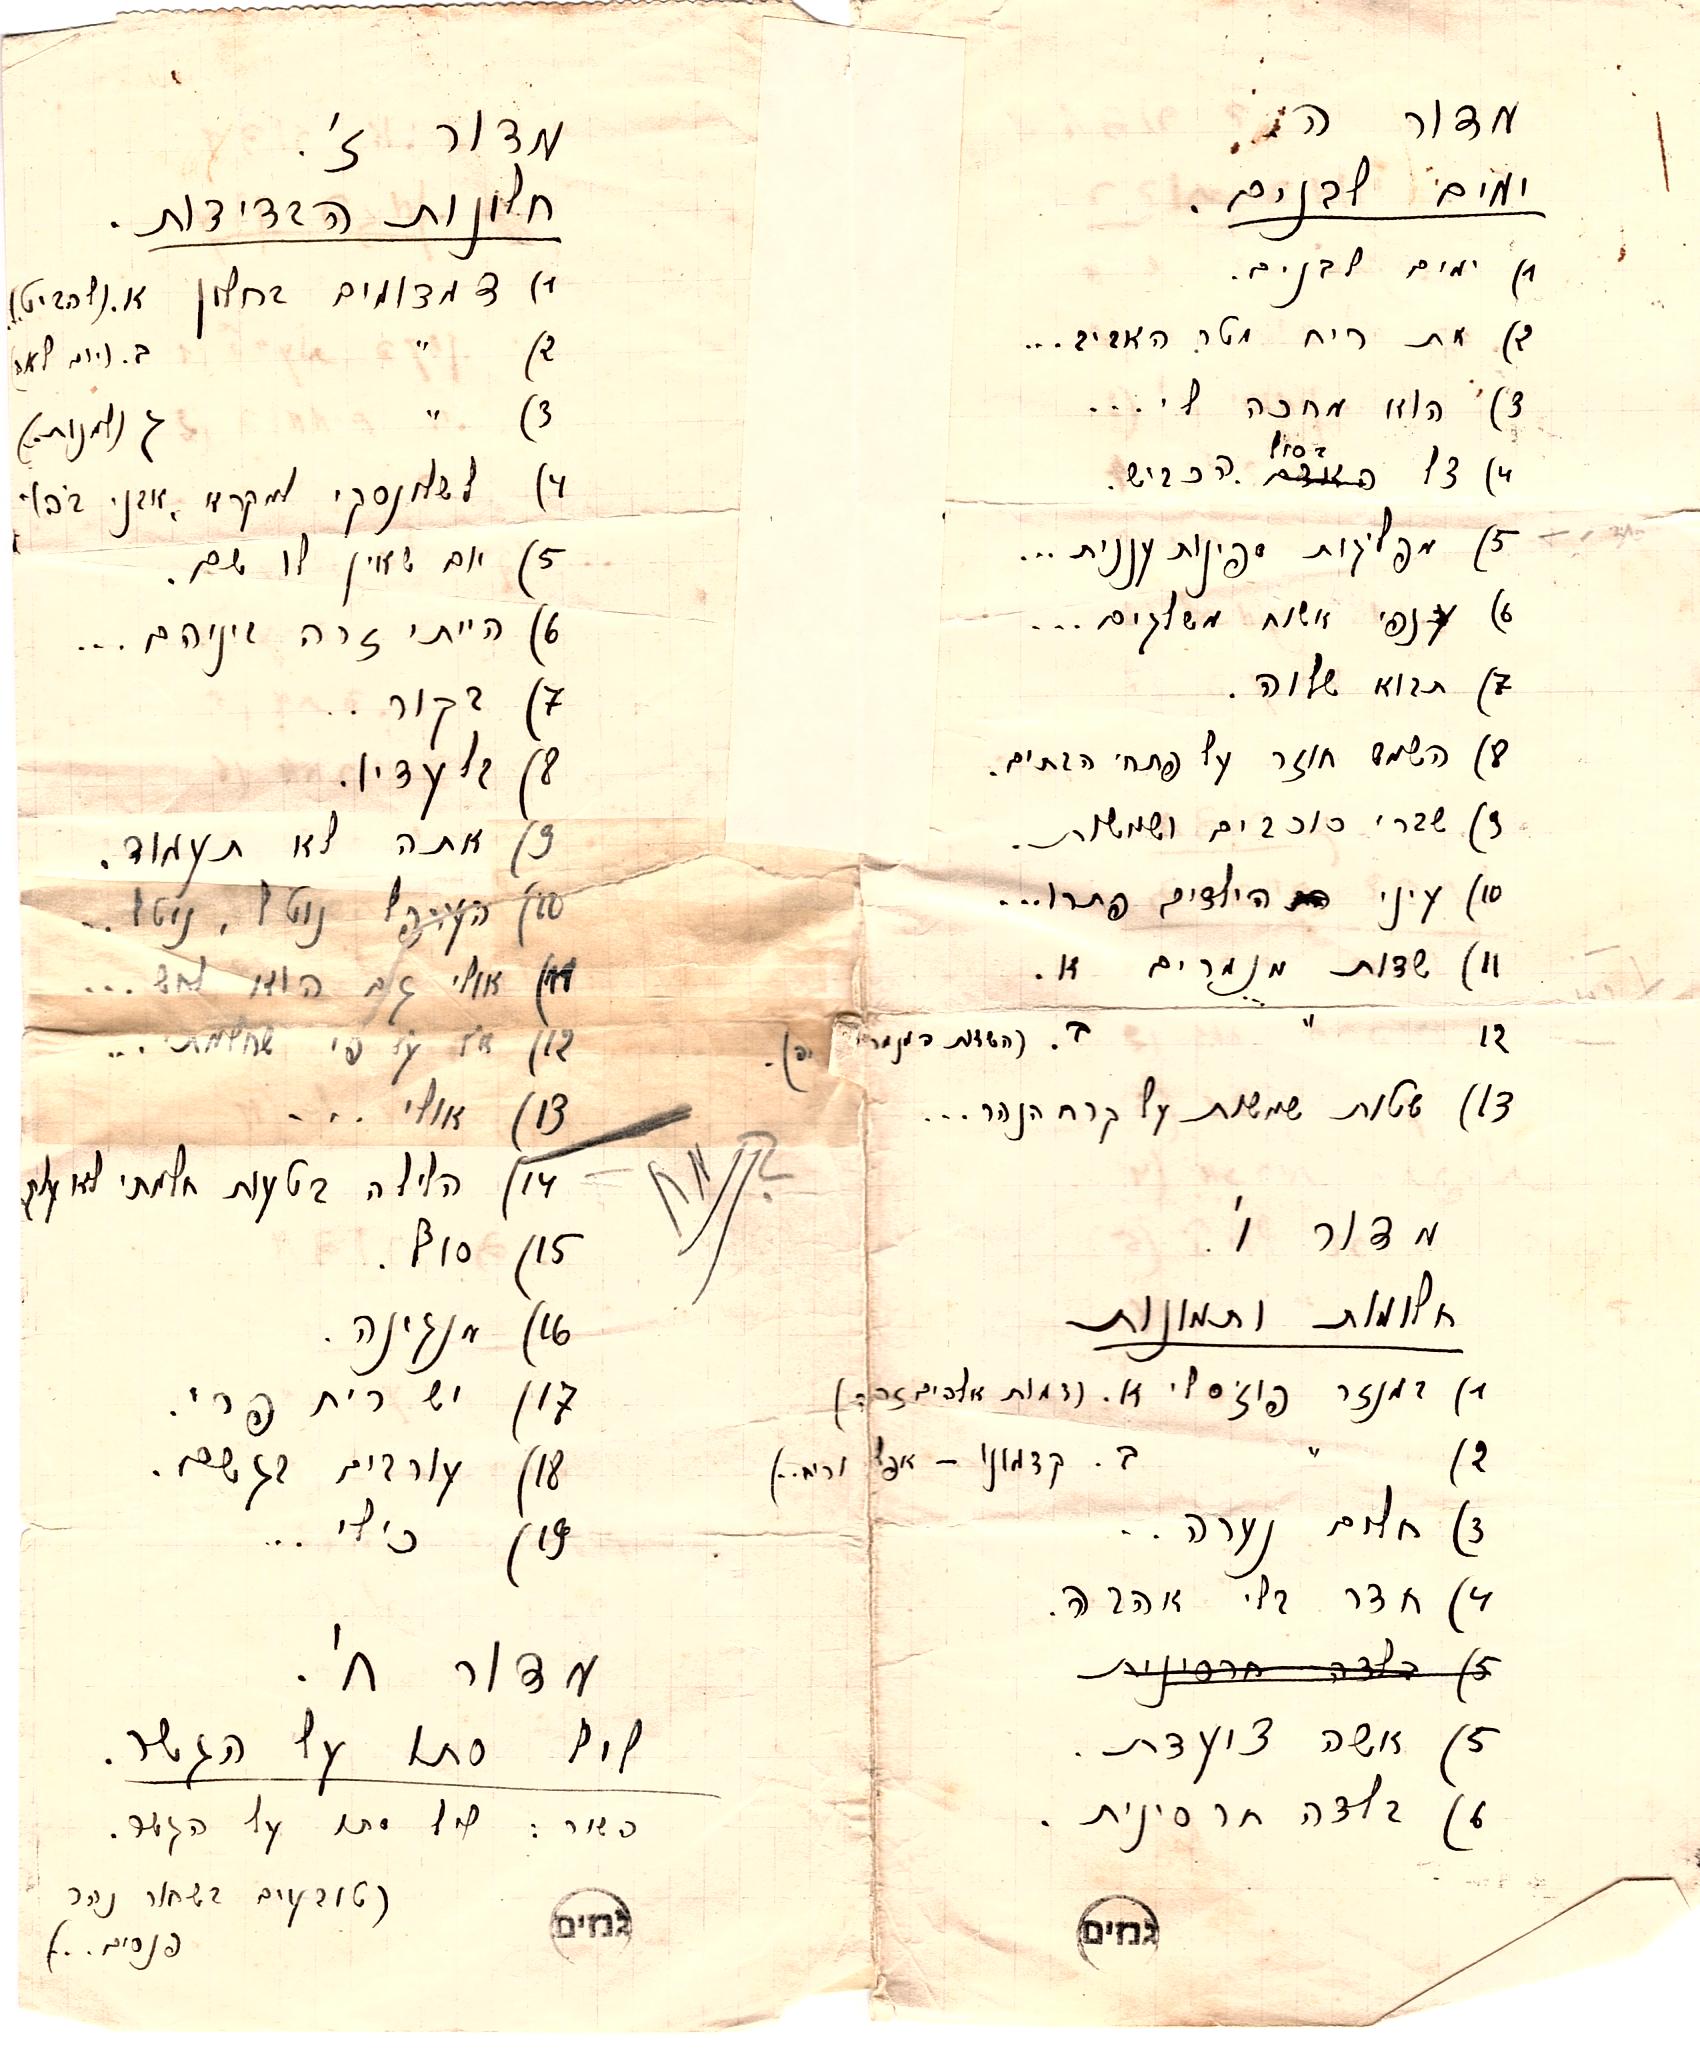 מדור ה
ימים לבנים.
1) ימים לבנים.
2) את ריח מטר האביב...
3) הוא מחכה לי...
בסוף
4) צל האדם הכביש.
5) מפליגות ספינות ענניות...
6) ענפי אשוח משלגים...
7) תבוא שלוה.
8) השמש חוזר על פתחי הבתים.
9) שברי כוכבים ושמשות.
10) עיני הילדים פתרו...
11) שדות מנומרים א.
12 " ב. (השדות המנומרים יפו).
13) שטות שמשות על קרח הנהר...
מדור ו'.
חלומות ותמונות
1) במנזר פוז'סלי א. (דמות אלהים זרה)
2) " ב. קדמוני – אפל וריח..)
3) חלום נערה...
4) חדר בלי אהבה.
5) בלדה חרסינית
5) אשה צועדת.
6) בלדה חרסינית.
גנזים
מדור ז'.
חלונות הבדידות.
1) דמדומים בחלון א. (להביט..)
2) " ב. (יום לאה)
3) " ג (למנות..)
4) לשלונסקי למקרא "אבני בהו"
5) אם שאין לו שם.
6) הייתי זרה ביניהם...
7) בקור..
8) בלעדיו.
9) אתה לא תעמוד.
10) הערפל נוטל, נוטל...
11) אולי גם הוא לחש...
12) אף על פי שחלמתי...
13) אולי...
14) הלילה בטעות חלמתי לא עליך
15) סוף.
16) מנגינה.
17) יש ריח פרי.
18) עורבים בגשם.
19) כילי...
מדור ח'.
ליל סתו על הגשר.
השיר: ליל סתו על הגשר.
(טובעים בשחור נהר
פנסים...)
גנזים